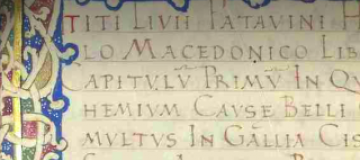 TITI LIVII PATAVINI
LO MACEDONICO LIB
CAPITULŪ PRIMŪ IN Q
HEMIUM CAUSE BELLI
MULTUS IN GALLIA CIS